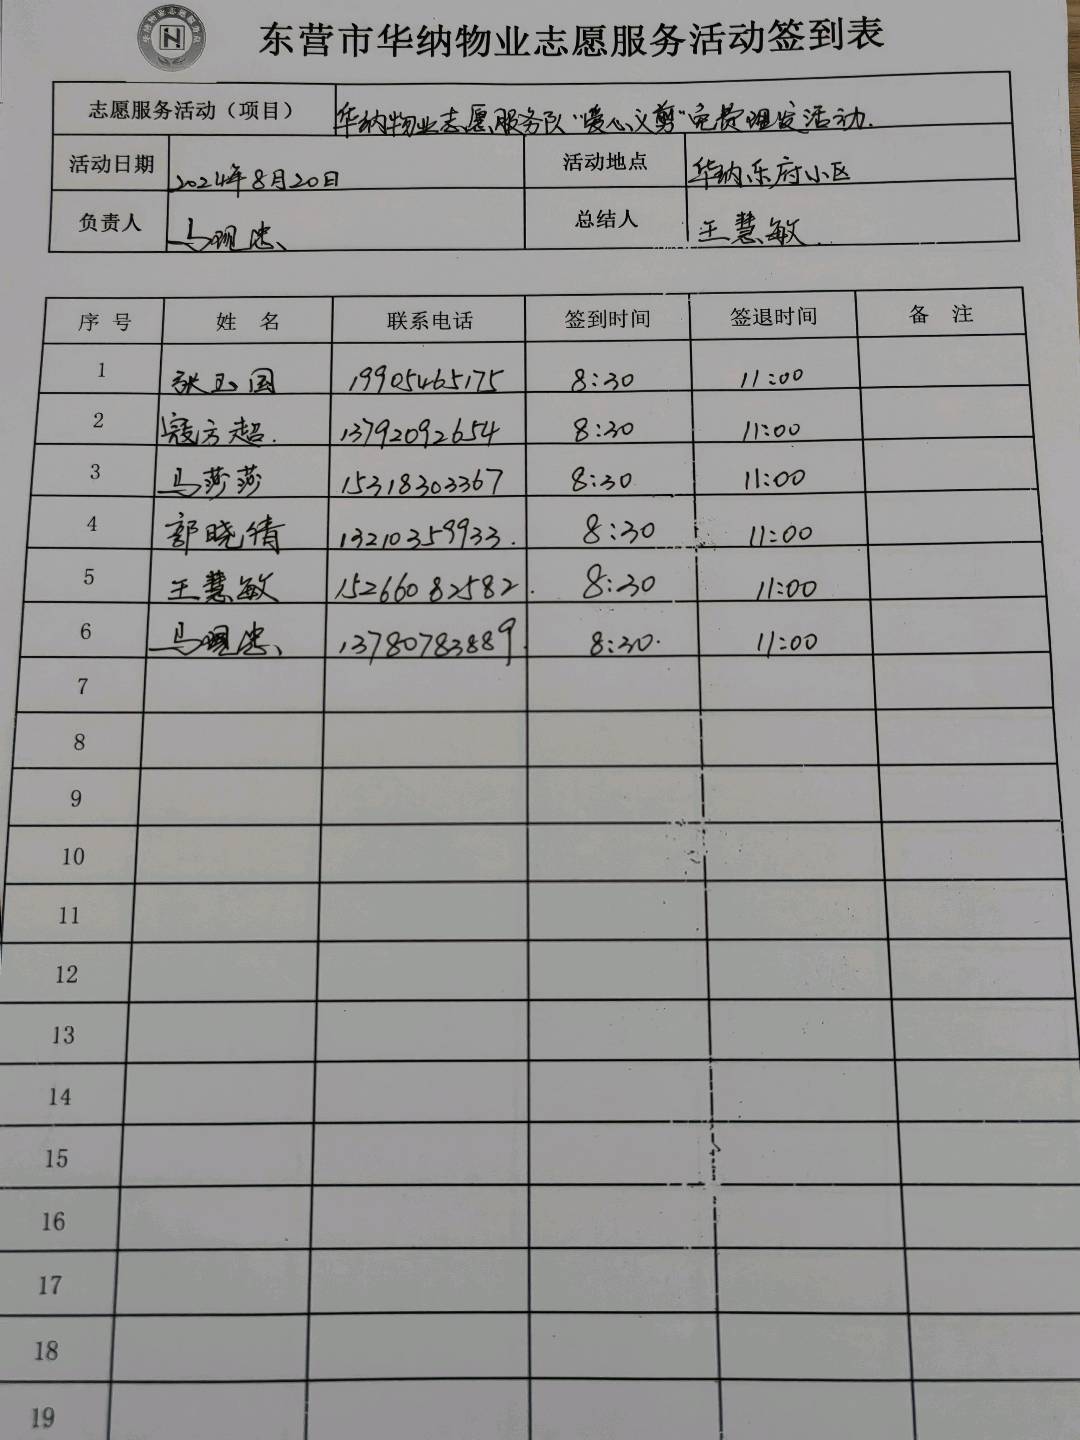 华纳物业志愿服务队
东营市华纳物业志愿服务活动签到表
志愿服务活动（项目） 华纳物业志愿服务队“爱心义剪”免费理发活动.
活动日期 2024年8月20日 活动地点 华纳乐府小区
负责人 马 忠 总结人 王慧敏.
序号 姓名 联系电话 签到时间 签退时间 备注
1 张玉国 19905465175 8:30 11:00
2 寇方超. 13792092654 8:30 11:00
3 马莎莎 15318303367 8:30 11:00
4 郭晓倩 13210359933. 8:30 11:00
5 王慧敏 15266082582. 8:30 11:00
6 马 忠 13780783889. 8:30. 11:00
7
8
9
10
11
12
13
14
15
16
17
18
19